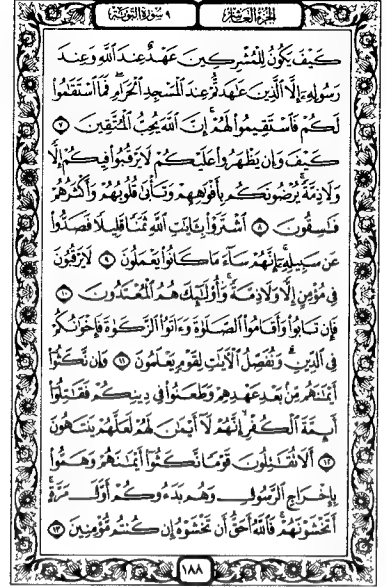 الجزء العاشر ٩ سورة التوبة
كَيْفَ يَكُونُ لِلْمُشْرِكِينَ عَهْدٌ عِندَ ٱللَّهِ وَعِندَ
رَسُولِهِۦٓ إِلَّا ٱلَّذِينَ عَٰهَدتُّمْ عِندَ ٱلْمَسْجِدِ ٱلْحَرَامِ ۖ فَمَا ٱسْتَقَٰمُوا۟
لَكُمْ فَٱسْتَقِيمُوا۟ لَهُمْ ۚ إِنَّ ٱللَّهَ يُحِبُّ ٱلْمُتَّقِينَ ٧
كَيْفَ وَإِن يَظْهَرُوا۟ عَلَيْكُمْ لَا يَرْقُبُوا۟ فِيكُمْ إِلًّا
وَلَا ذِمَّةً ۚ يُرْضُونَكُم بِأَفْوَٰهِهِمْ وَتَأْبَىٰ قُلُوبُهُمْ وَأَكْثَرُهُمْ
فَٰسِقُونَ ٨ ٱشْتَرَوْا۟ بِـَٔايَٰتِ ٱللَّهِ ثَمَنًا قَلِيلًا فَصَدُّوا۟
عَن سَبِيلِهِۦٓ ۚ إِنَّهُمْ سَآءَ مَا كَانُوا۟ يَعْمَلُونَ ٩ لَا يَرْقُبُونَ
فِى مُؤْمِنٍ إِلًّا وَلَا ذِمَّةً ۚ وَأُو۟لَٰٓئِكَ هُمُ ٱلْمُعْتَدُونَ ١٠
فَإِن تَابُوا۟ وَأَقَامُوا۟ ٱلصَّلَوٰةَ وَءَاتَوُا۟ ٱلزَّكَوٰةَ فَإِخْوَٰنُكُمْ
فِى ٱلدِّينِ ۗ وَنُفَصِّلُ ٱلْءَايَٰتِ لِقَوْمٍ يَعْلَمُونَ ١١ وَإِن نَّكَثُوٓا۟
أَيْمَٰنَهُم مِّنۢ بَعْدِ عَهْدِهِمْ وَطَعَنُوا۟ فِى دِينِكُمْ فَقَٰتِلُوٓا۟
أَئِمَّةَ ٱلْكُفْرِ ۙ إِنَّهُمْ لَآ أَيْمَٰنَ لَهُمْ لَعَلَّهُمْ يَنتَهُونَ
١٢ أَلَا تُقَٰتِلُونَ قَوْمًا نَّكَثُوٓا۟ أَيْمَٰنَهُمْ وَهَمُّوا۟
بِإِخْرَاجِ ٱلرَّسُولِ وَهُم بَدَءُوكُمْ أَوَّلَ مَرَّةٍ ۚ
أَتَخْشَوْنَهُمْ ۚ فَٱللَّهُ أَحَقُّ أَن تَخْشَوْهُ إِن كُنتُم مُّؤْمِنِينَ ١٣
١٨٨